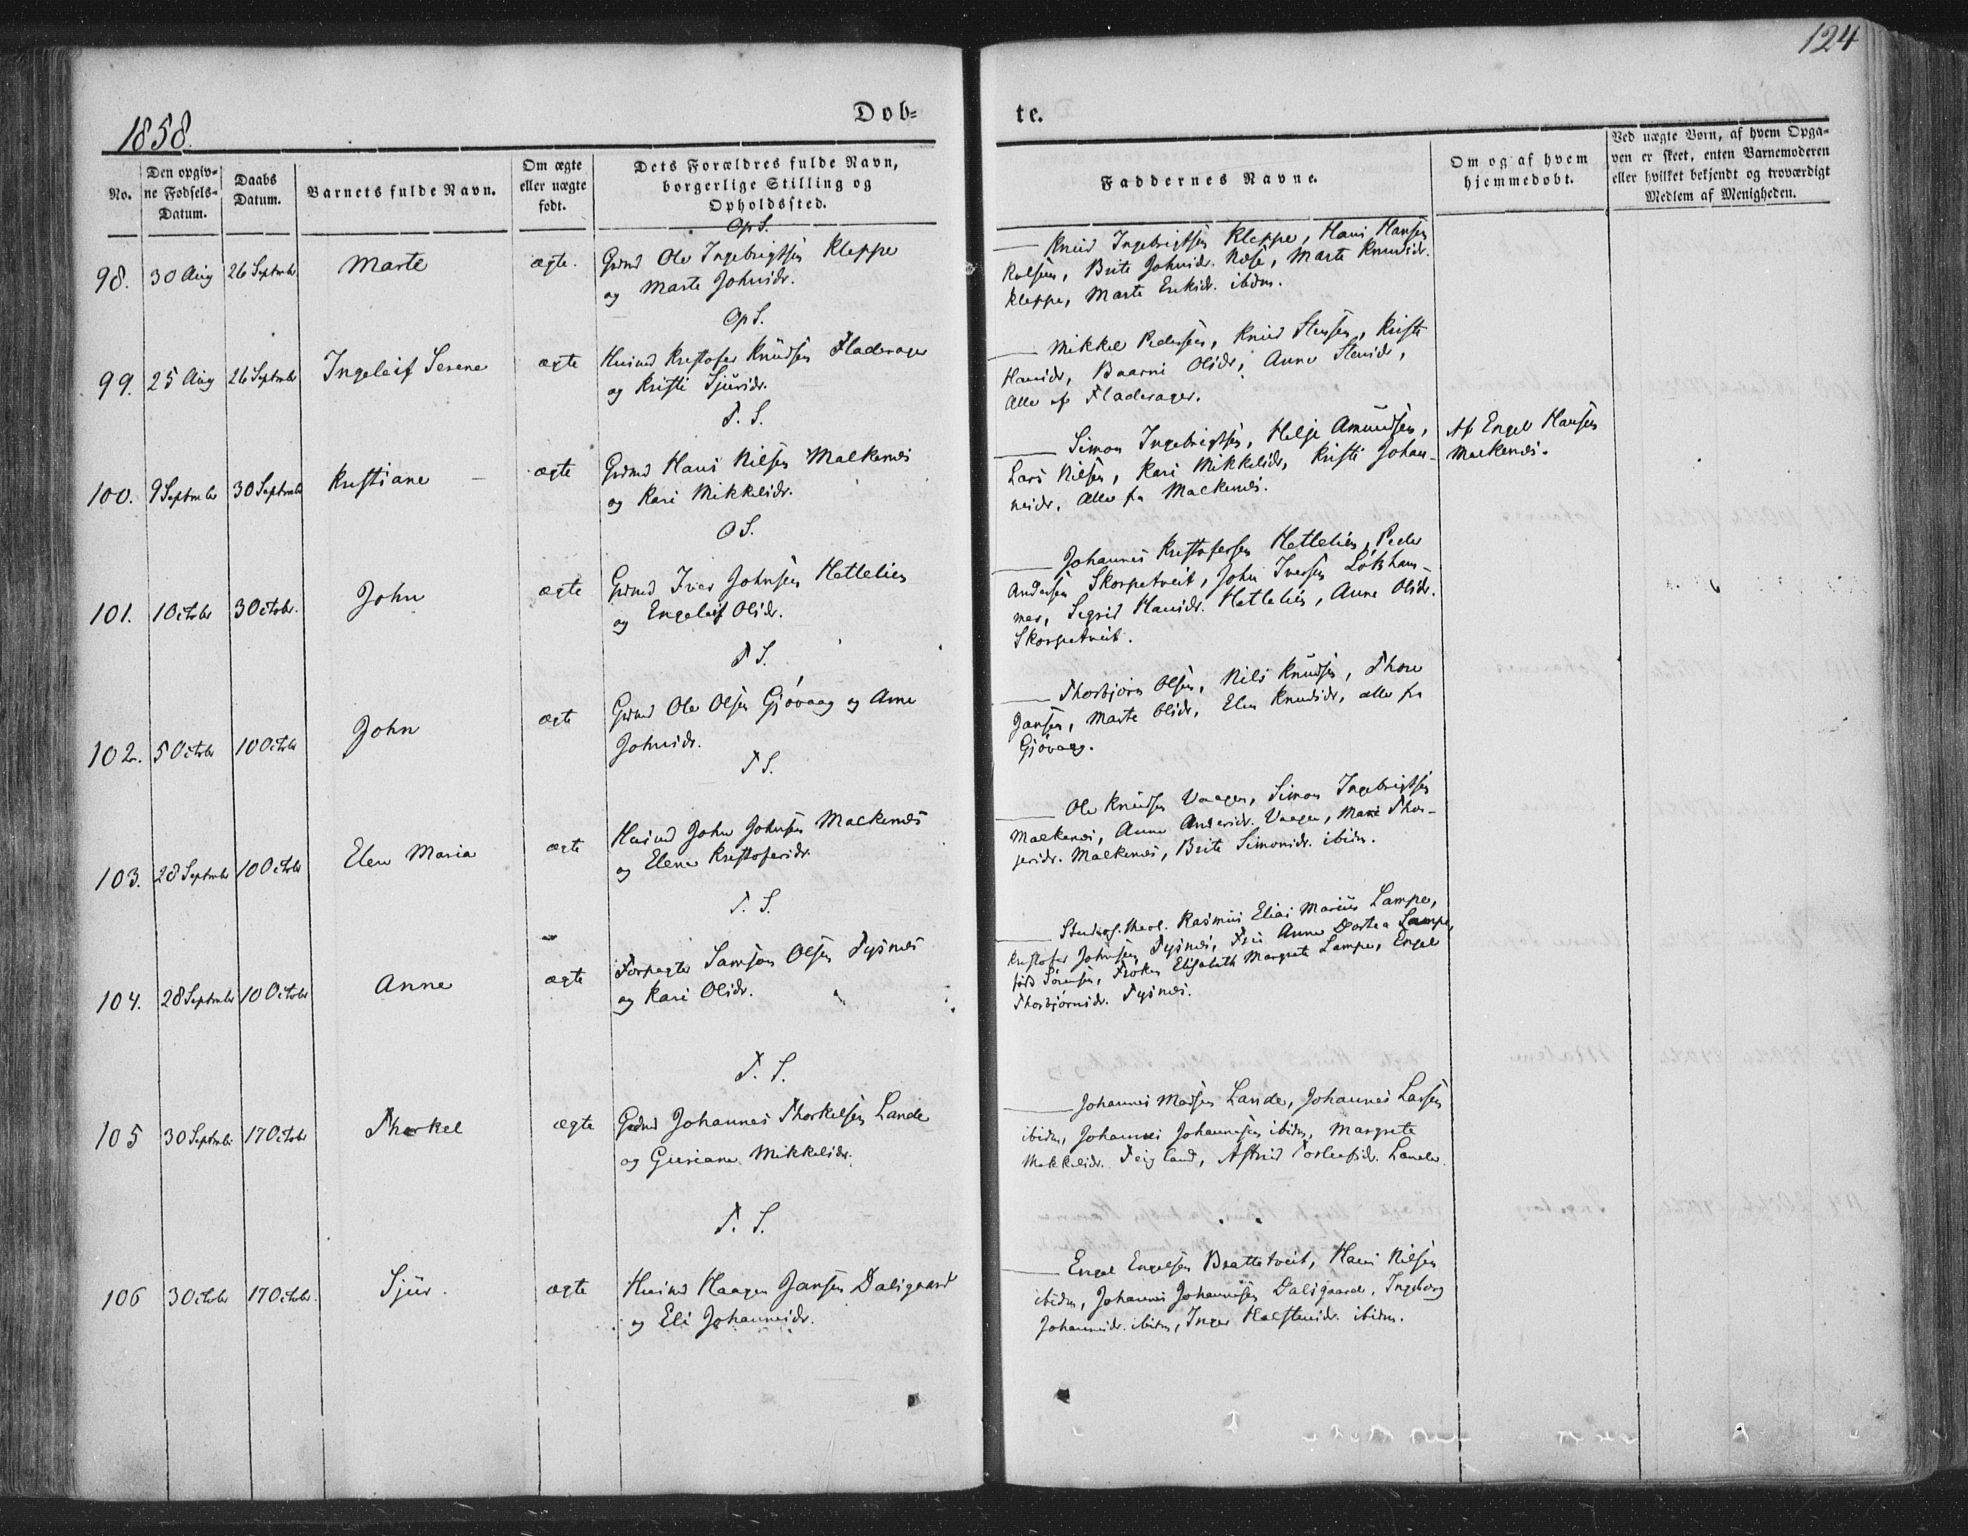 124
1858.
Døb-
te.
No.
Den opgiv-
ne Fødsels-
Datum.
Daabs
Datum.
Barnets fulde Navn.
Om ægte
eller uægte
født.
Dets Forældres fulde Navn,
borgerlige Stilling og
Opholdssted.
Faddernes Navne.
Om og af hvem
hjemmedøbt.
Ved uægte Børn, af hvem Opga-
ven er skeet, enten Barnemoderen
eller hvilket bekjendt og troværdigt
Medlem af Menigheden.
Op S.
98. 30 Aug 26 Septmbr. Marte ægte. Grmd Ole Ingebrigtsen Kleppe
og Marte Johnsdr.
Knud Ingebrigtsen Kleppe, Hans Hansen
Brite Johnsdr. Næse, Marte Knudsdr.
Kleppe, Marte Eriksdr. ibidm.
Op S.
99. 25 Aug 26 Septmbr Ingeleif Serene ægte Husmd Kristofer Knudsen Fladerager
og Kristi Sjursdr.
Mikkel Pedersen, Knud Stensen, Kristi
Hansdr, Baarni Olsdr, Anne Stensdr,
Alle af Fladerager.
T. S.
100. 9 Septmbr 30 Septmbr Kristiane ægte Grmd Hans Nilsen Malkenæs
og Kari Mikkelsdr.
Simon Ingebrigtsen, Helje Amundsen,
Lars Nilsen, Kari Mikkelsdr, Kristi Johan-
nesdr, Alle fra Malkenæs.
Af Engel Hansen
Malkenæs.
O S.
101. 1 Octobr 3 Octobr. John ægte Grmd Iver Johnsen Hettelien
og Engeleif Olsdr.
Johannes Kristofersen Hettelien, Peder
Andersen Skorpetveit, John Iversen Løkham-
mer, Sigrid Hansdr. Hettelien, Anne Olsdr.
Skorpetveit.
T S.
102. 5 Octobr 10 Octobr John ægte Grmd Ole Olsen Gjøvaag og Anne
Johnsdr.
Thorbjørn Olsen, Nils Knudsen, Thore
Jansen, Marte Olsdr, Elen Knudsdr, alle fra
Gjøvaag.
T S.
103. 28 Septmbr 10 Octobr Elen Maria ægte Husmd John Johnsen Malkenæs
og Elene Kristofersdr.
Ole Knudsen Vaagen, Simon Ingebrigtsen
Malkenæs, Anne Andersdr. Vaagen, Mari Thor-
gersdr. Malkenæs, Brite Simonsdr. ibidm.
T. S.
104. 28 Septmbr 10 Octobr Anne ægte Forpagter Samson Olsen Tysnæs
og Kari Olsdr.
Stud. theol. Rasmus Elias Marius Lampe,
Kristofer Johnsen Tysnæs, Frue Anne Dortea Lampe,
født Sørensen, Frøken Elisabeth Margrete Lampe, Engel
Thorbjørnsdr. Tysnæs.
T. S.
105 30 Septmbr 17 Octobr Thorkel ægte Grdmd Johannes Thorkelsen Lande
og Guriane Mikkelsdr.
Johannes Madsen Lande, Johannes Larsen
ibidm, Johannes Johannesen ibidm, Margrete
Mikkelsdr. Teigland, Astrid Torleifsdr. Lande.
T. S.
106 3 Octobr 17 Octobr. Sjur. ægte Husmd Haagen Jansen Dalsgaard
og Eli Johannesdr.
Engel Engelsen Brattetveit, Hans Nilsen
ibidm, Johannes Johannesen Dalsgaard, Ingeborg
Johannesdr. ibidm, Inger Halstensdr. ibidm.